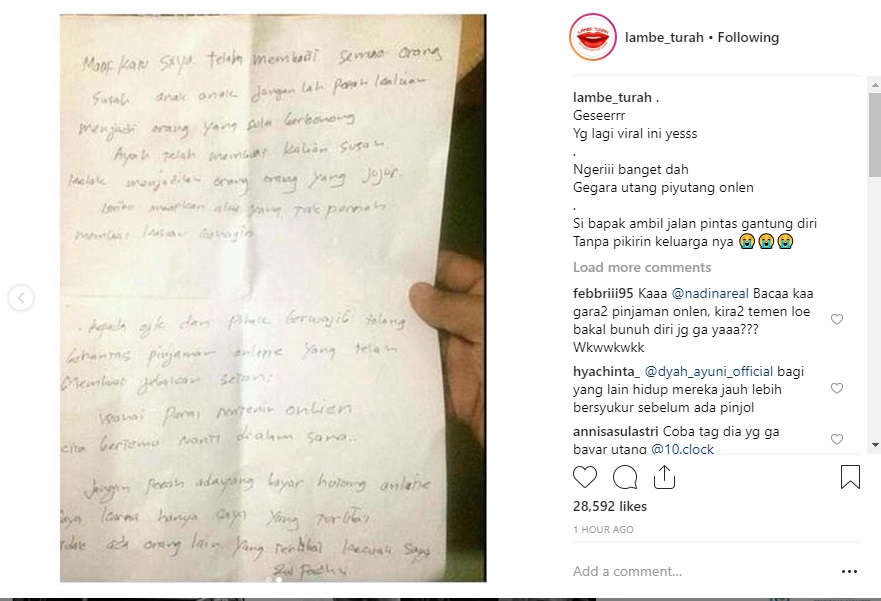 Maaf kan saya telah membuat semua orang
susah anak anak jangan lah pernah kalian
menjadi orang yang suka berbohong
Ayah telah membuat kalian susah.
kelak menjadilah orang orang yang jujur
maafkan aku yang tak pernah
membuat kamu bahagia
kepada ojk dan pihak berwajib tolong
berantas pinjaman online yang telah
membuat jebakan setan.
wahai para rentenir onlien
kita bertemu nanti dialam sana..
Jangan pernah ada yang bayar hutang online
saya karna hanya saya yang terlibat
tidak ada orang lain yang terlibat kecuali saya
LAMBE TURAH
lambe_turah • Following
lambe_turah .
Geseerrr
Yg lagi viral ini yesss
.
Ngeriii banget dah
Gegara utang piyutang onlen
.
Si bapak ambil jalan pintas gantung diri
Tanpa pikirin keluarga nya 😭😭😭
Load more comments
febbriii95 Kaaa @nadinareal Bacaa kaa
gara2 pinjaman onlen, kira2 temen loe
bakal bunuh diri jg ga yaaa???
Wkwwkwkk
hyachinta_ @dyah_ayuni_official bagi
yang lain hidup mereka jauh lebih
bersyukur sebelum ada pinjol
annisasulastri Coba tag dia yg ga
bayar utang @10.clock
28,592 likes
1 HOUR AGO
Add a comment...